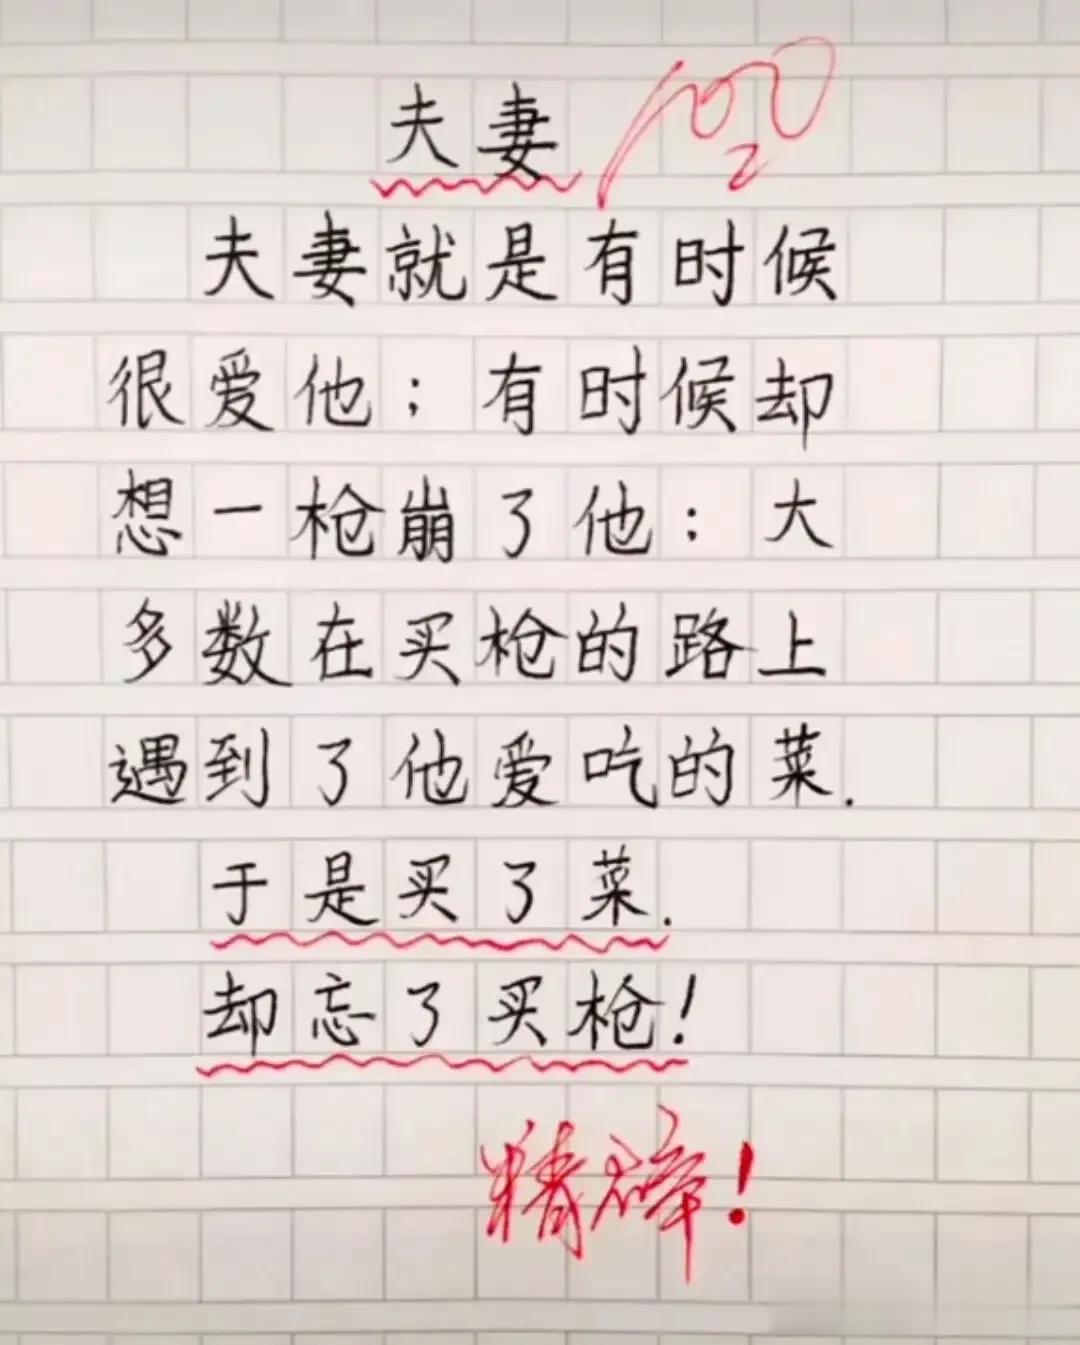 夫妻
夫妻就是有时候
很爱他；有时候却
想一枪崩了他：大
多数在买枪的路上
遇到了他爱吃的菜.
于是买了菜.
却忘了买枪！
精辟！